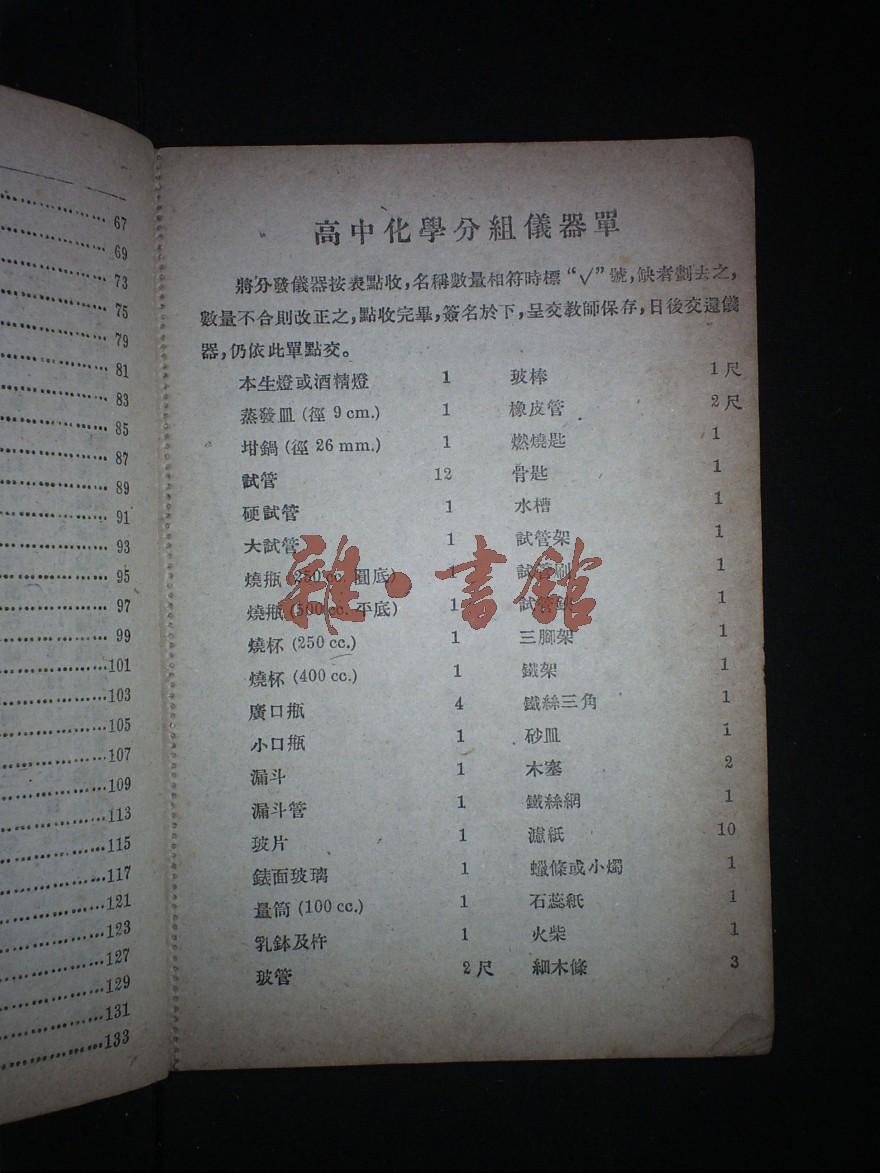 67
69
73
75
79
81
83
85
87
89
91
93
95
97
99
101
103
105
107
109
113
115
117
121
123
127
129
131
133
高中化學分組儀器單
將分發儀器按表點收，名稱數量相符時標“√”號，缺者劃去之，
數量不合則改正之，點收完畢，簽名於下，呈交教師保存，日後交還儀
器，仍依此單點交。
本生燈或酒精燈 1 玻棒 1尺
蒸發皿(徑 9 cm.) 1 橡皮管 2尺
坩鍋(徑 26 mm.) 1 燃燒匙 1
試管 12 骨匙 1
硬試管 1 水槽 1
大試管 1 試管架 1
燒瓶(250 cc. 圓底) 1 試管刷 1
燒瓶(500 cc. 平底) 1 試管 1
燒杯(250 cc.) 1 三腳架 1
燒杯(400 cc.) 1 鐵架 1
廣口瓶 4 鐵絲三角 1
小口瓶 1 砂皿 1
漏斗 1 木塞 2
漏斗管 1 鐵絲網 1
玻片 1 濾紙 10
錶面玻璃 1 蠟條或小燭 1
量筒(100 cc.) 1 石蕊紙 1
乳鉢及杵 1 火柴 1
玻管 2尺 細木條 3
雜·書館